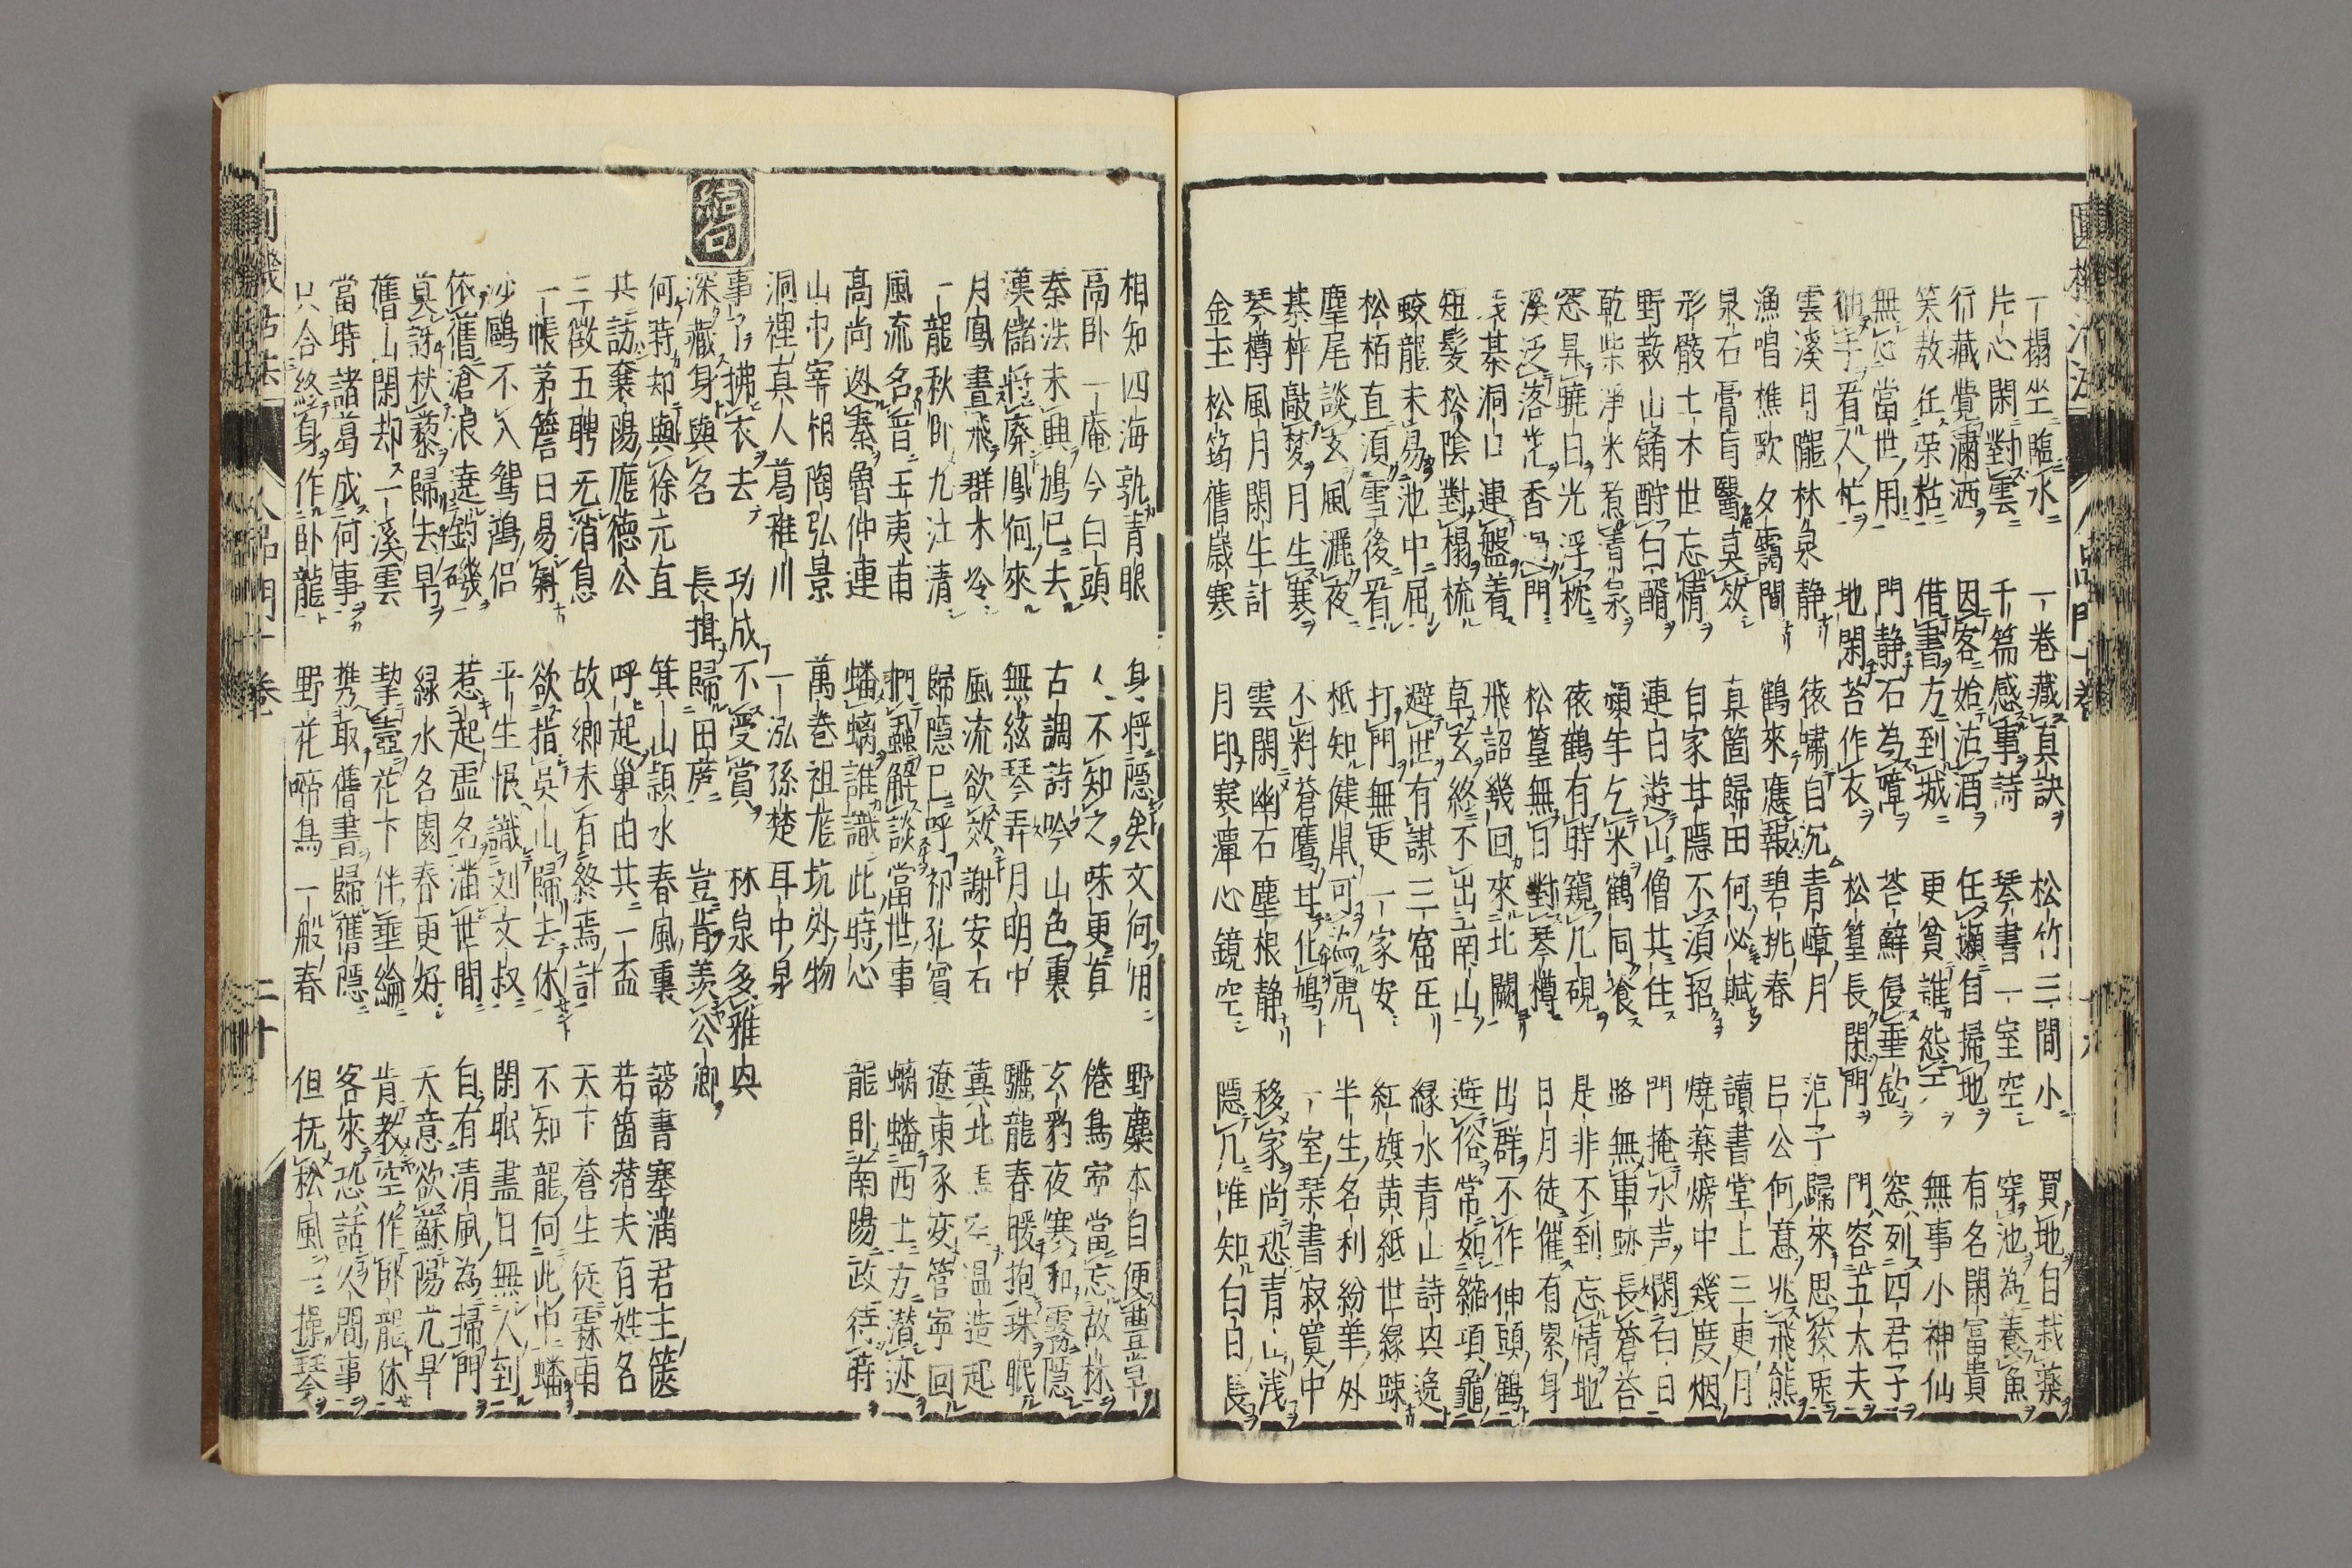 一榻坐臨水 一巻藏真訣 松竹三間小 買地自栽藥
片心閑對雲 千篇感事詩 琴書一室空 穿池為養魚
行藏覺瀟洒 因客始沽酒 任懶自掃地 有名閑富貴
笑敖任荣枯 借書方到城 更貧誰怨天 無事小神仙
無心當世用 門静石為障 苔蘚侵垂釣 窓列四君子
袖手看人忙 地閑苔作衣 松篁長閉門 門容五大夫
雲溪月隴林泉静 依嘯自沉青嶂月 范子歸來思狡兎
漁唱樵歌夕靄間 鶴來應報碧桃春 呂公何意兆飛熊
泉石膏肓醫莫效 真箇歸田何必賦 讀書堂上三更月
形骸土木世忘情 自家甘隱不須招 燒藥爐中幾度烟
野蔌山餚酧白醑 連日遊山僧共住 門掩水声閑白日
乾柴淨米煮清泉 頻年乞米鶴同飡 路無車跡長蒼苔
窓晃曉日光浮枕 依鶴有時窺几硯 是非不到忘情地
溪泛落花香過門 松篁無日對琴樽 日月徒催有累身
残棊洞口連盤着 飛詔幾回來北闕 出群不作伸頭鶴
短髮松陰對榻梳 草玄終不出南山 避俗常如縮項龜
蛟龍未易池中屈 避世有謀三窟在 緑水青山詩内逸
松栢直須雪後看 打門無吏一家安 紅旗黄紙世縁踈
塵尾談玄風灑夜 柢知健鼠可論虎 半生名利紛華外
棊枰敲夢月生寒 不料蒼鷹甘化鳩 一室琴書寂寞中
琴樽風月閑生計 雲閑幽石塵根静 移家尚恐青山浅
金玉松筠舊歳寒 月印寒潭心鏡空 隱几唯知白日長
相知四海孰青眼 身将隱矣文何用 野麋本自便豊草
高卧一庵今白頭 人不知之味更真 倦鳥寧當忘故林
秦法未興鳩已去 古調詩吟山色裏 玄豹夜寒和霧隱
漢儲将廢鳳何來 無絃琴弄月明中 驪龍春暖抱珠眠
月鳳晝飛群木冷 風流欲效謝安石 冀北馬空温造起
一龍秋卧九江清 歸隱已呼祁孔賓 遼東豕変管寧回
風流名晋王夷甫 捫蝨解談當世事 螭蟠西土方潜迹
高尚迯秦魯仲連 蟠螭誰識此時心 龍卧南陽政待時
山中宰相陶弘景 萬巻祖庬坑外物
洞裡真人葛稚川 一泓孫楚耳中泉
結句
事了拂衣去 功成不受賞 林泉多雅内
深藏身與名 長揖歸田蘆 豈肯羨公卿
何時却與徐元直 箕山潁水春風裏 謗書塞満君主篋
共訪襄陽龐德公 呼起巣由共一盃 若箇潜夫有姓名
三徴五聘无消息 故郷未有終焉計 天下蒼生徒霖雨
一帳茅簷日易斜 欲指呉山歸去休 不知龍何此中蟠
沙鷗不入鴛鴻侣 平生恨識刘文叔 閑眠盡日無人到
依舊滄浪遶釣磯 惹起虚名満世間 自有清風為掃門
莫訝杖藜歸去早 緑水名園春更好 天意欲蘇陽亢旱
舊山閑却一溪雲 挈壼花下伴垂綸 肯教空作卧龍休
當時諸葛成何事 携取舊書歸舊隱 客來恐話人間事
只合終身作卧龍 野花啼鳥一般春 但抚松風一操琴
二十